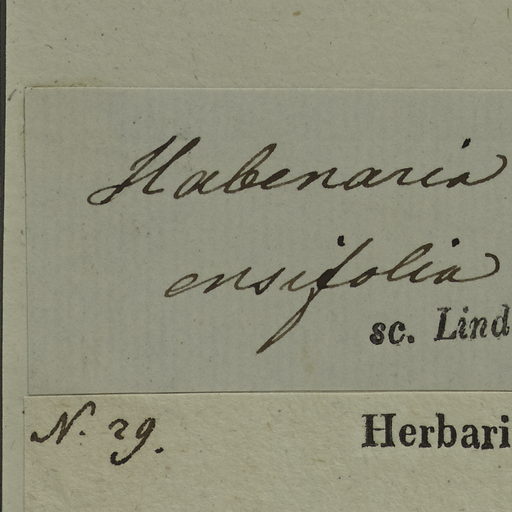 Habenaria
ensifolia
sc. Lind
N. 29.
Herbari